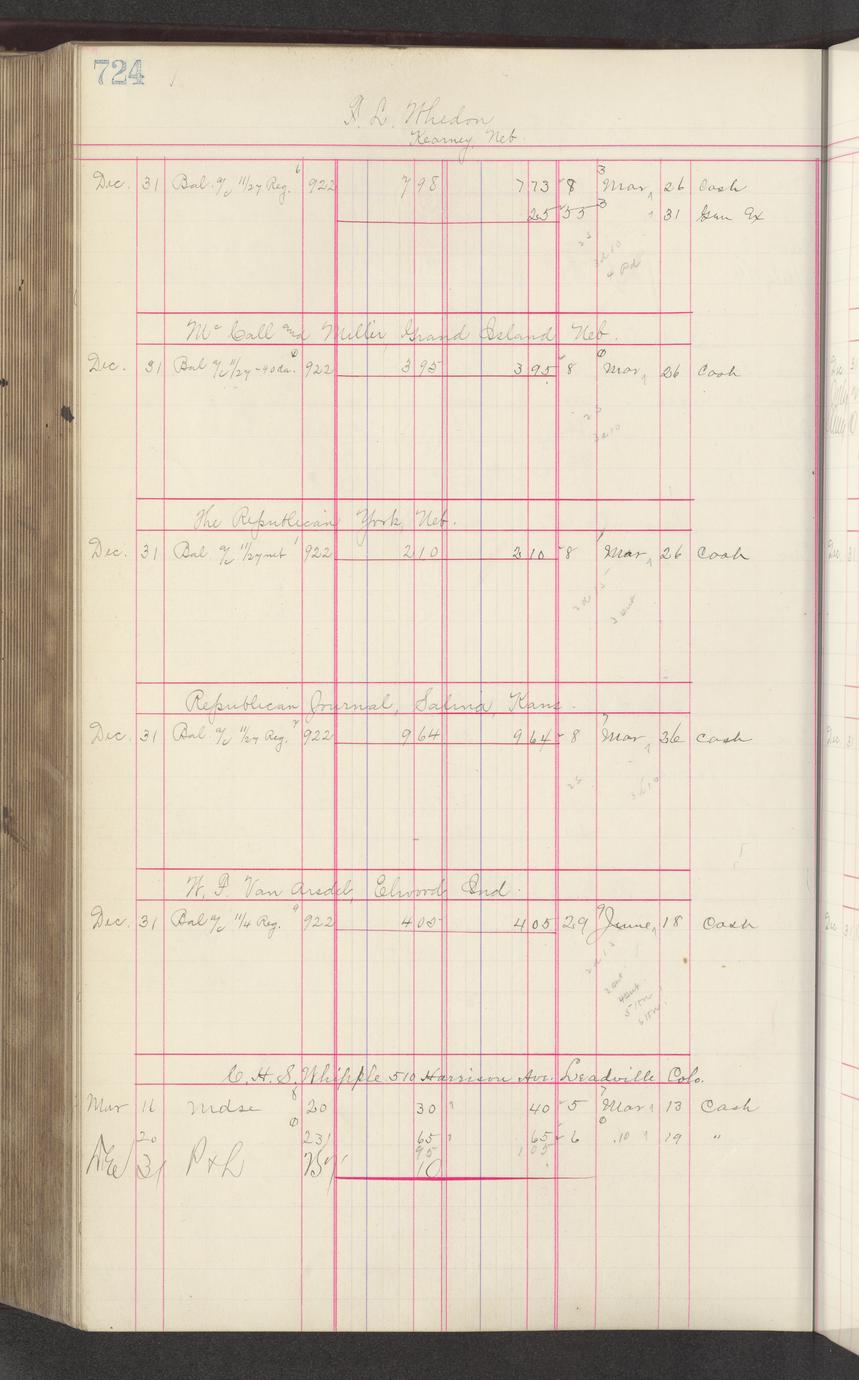 724
F. L. Whedon
Kearney, Neb.
Dec. 31 Bal. a/c 11/27 Reg. 6 922 7 98 7 73 8 3 Mar 26 Cash
25 55 3 " 31 Gen Ex
25
3d 10
4 Pd
Mc Call and Miller, Grand Island, Neb.
Dec. 31 Bal a/c 11/27 - 90 da. 0 922 3 95 3 95 8 0 Mar 26 Cash
25
3d 10
The Republican York, Neb.
Dec. 31 Bal a/c 11/27 net 1 922 2 10 2 10 8 1 Mar 26 Cash
Republican Journal, Salina, Kans.
Dec. 31 Bal a/c 11/27 Reg. 7 922 9 64 9 64 8 7 Mar 26 Cash
25
3d 10
W. P. Van Arsdel, Elwood, Ind.
Dec. 31 Bal a/c 11/4 Reg. 9 922 4 05 4 05 29 9 June 18 Cash
C. H. S. Whipple 510 Harrison Ave. Leadville Colo.
Mar 11 Mdse 8 20 30 40 5 7 Mar 13 Cash
20 0 231 65 65 6 0 .10 19 "
95 1 05
Dec 31 P & L 10